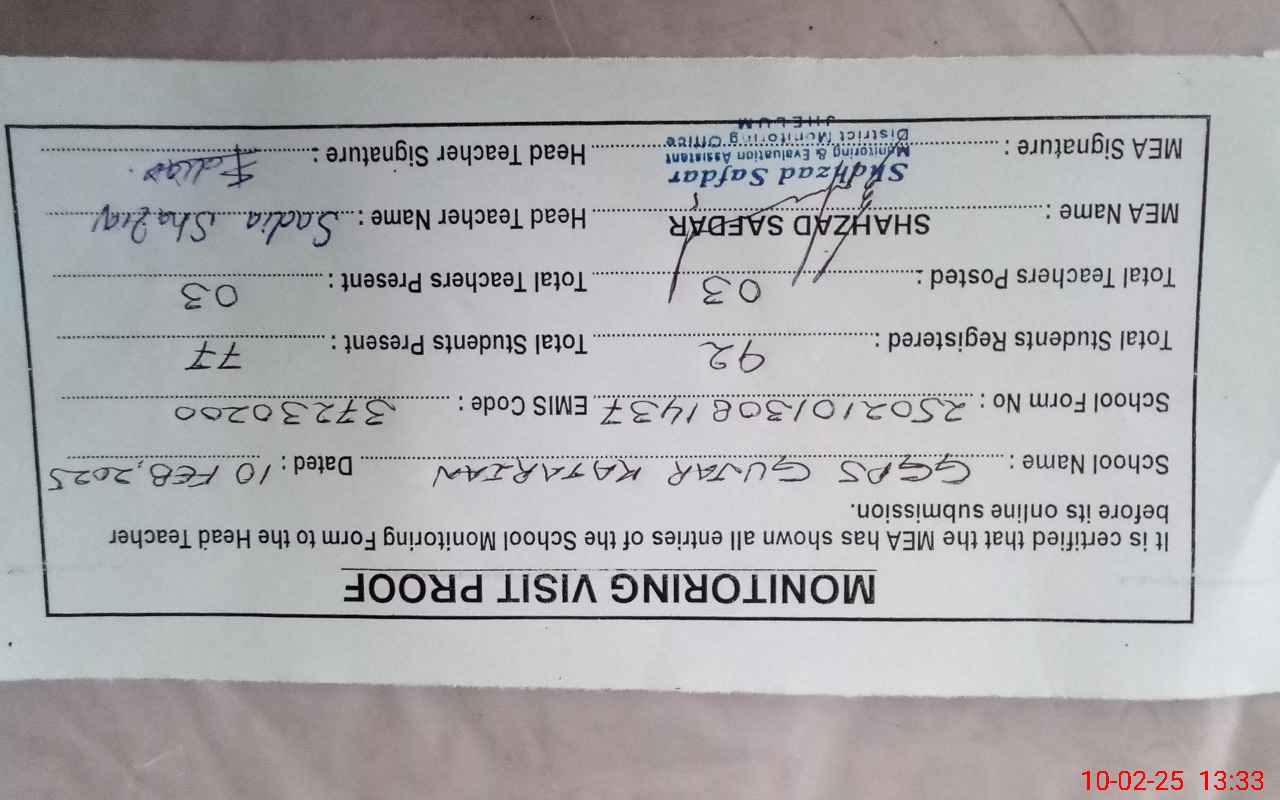 MONITORING VISIT PROOF
It is certified that the MEA has shown all entries of the School Monitoring Form to the Head Teacher
before its online submission.
School Name : GGPS GUJAR KATARIAN Dated : 10 FEB, 2025
School Form No : 2502101308 1437 EMIS Code : 37230200
Total Students Registered : 92 Total Students Present : 77
Total Teachers Posted : 03 Total Teachers Present : 03
MEA Name : SHAHZAD SAFDAR Head Teacher Name : Sadia Shazia
MEA Signature : Head Teacher Signature :
Shahzad Safdar
Monitoring & Evaluation Assistant
District Monitoring Office
JHELUM
10-02-25 13:33